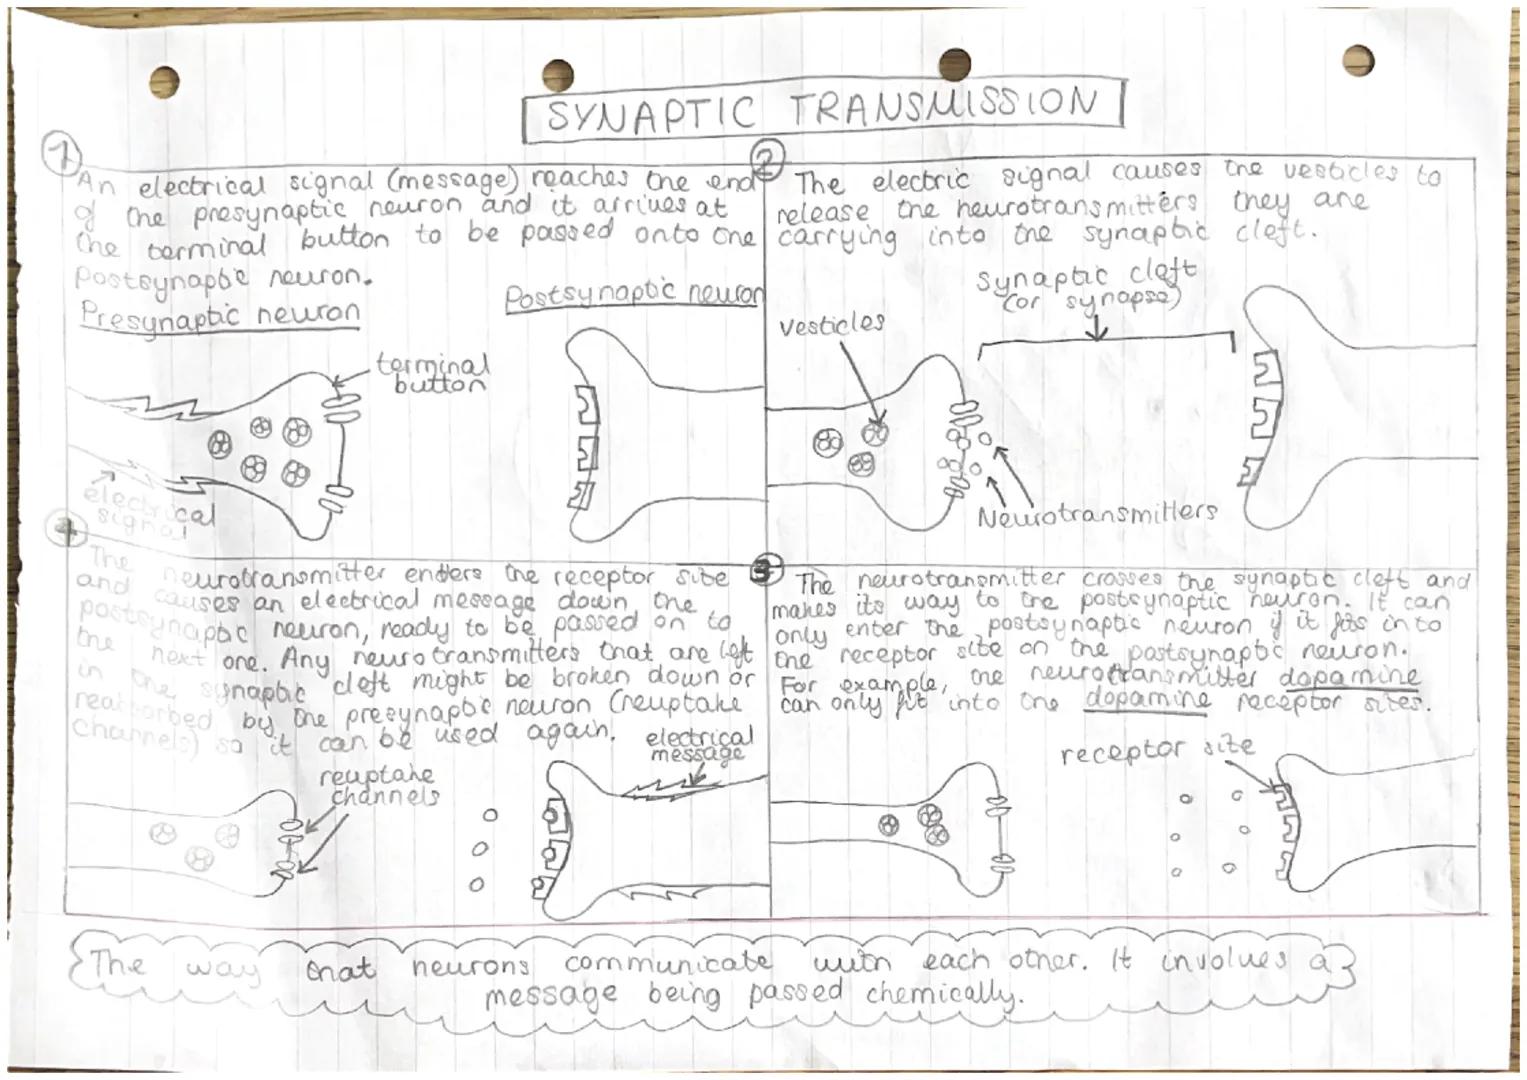 SYNAPTIC TRANSMISSION
1
An electrical signal (message) reaches the end
of the presynaptic neuron and it arrives at
the terminal button to be passed onto the
postsynaptic neuron.
Presynaptic neuron
Postsynaptic neuron
terminal
button
electrical
signal
2
The electric signal causes the vesticles to
release the neurotransmitters they are
carrying into the synaptic cleft.
Synaptic cleft
(or synapse)
vesticles
Neurotransmitters
3
The neurotransmitter crosses the synaptic cleft and
makes its way to the postsynaptic neuron. It can
only enter the postsynaptic neuron if it fits into
the receptor site on the postsynaptic neuron.
For example, the neurotransmitter dopamine
can only fit into the dopamine receptor sites.
receptor site
4
The neurotransmitter enters the receptor site
and causes an electrical message down the
postsynaptic neuron, ready to be passed on to
the next one. Any neurotransmitters that are left
in the synaptic cleft might be broken down or
reabsorbed by the presynaptic neuron (reuptake
channels) so it can be used again.
electrical
message
reuptake
channels
The way that neurons communicate with each other. It involves a
message being passed chemically.